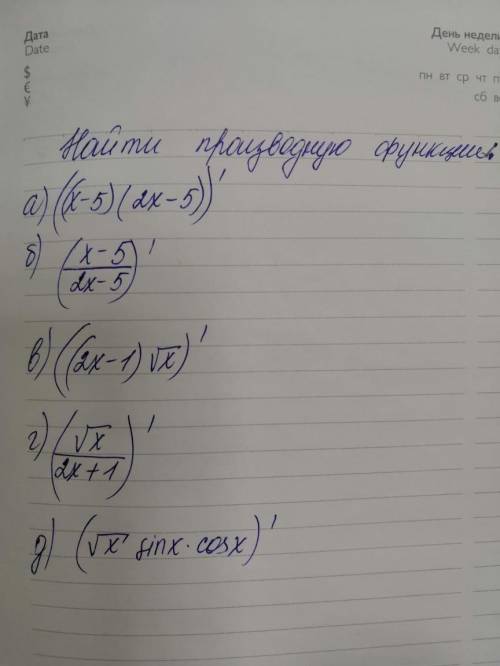 Дата
Date
$
€
¥
День недели
Week da
пн вт ср чт п
сб в
Найти производную функции
а) ((x-5)(2x-5))'
б) (x-5 / 2x-5)'
в) ((2x-1)√x)'
г) (√x / 2x+1)'
д) (√x sinx·cosx)'